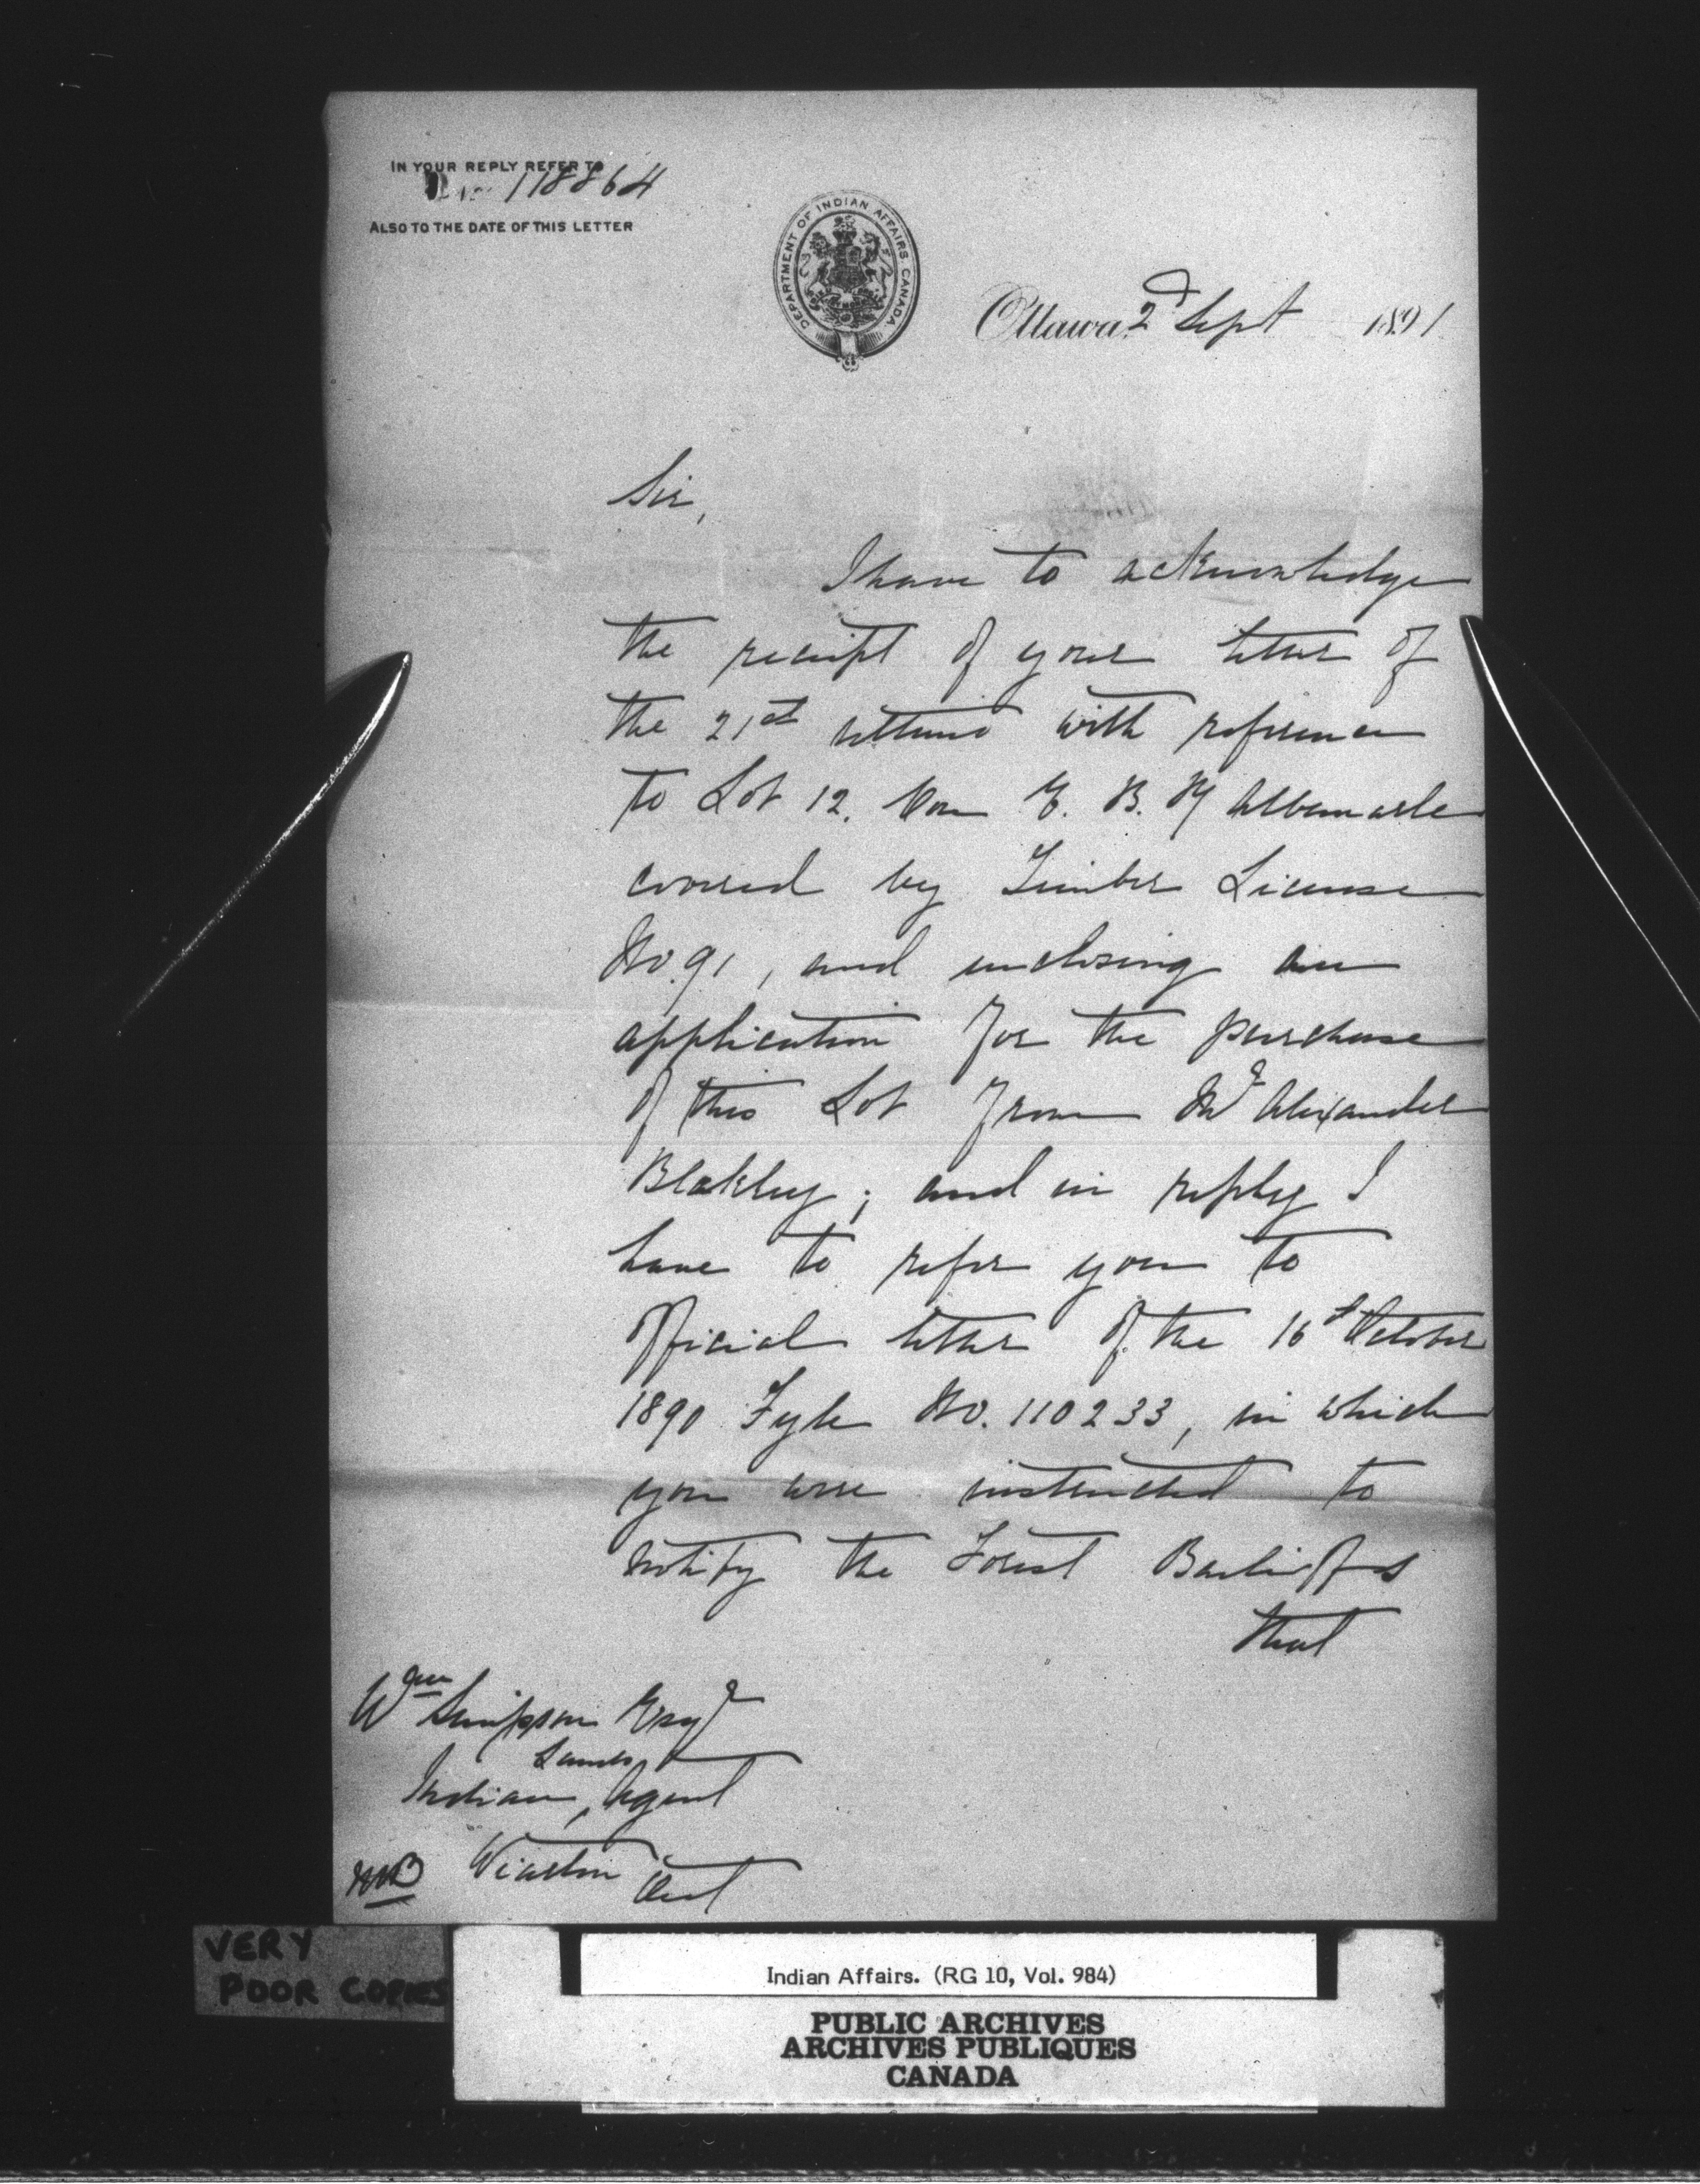 IN YOUR REPLY REFER TO
No 118864
ALSO TO THE DATE OF THIS LETTER
DEPARTMENT OF INDIAN AFFAIRS, CANADA
Ottawa, 2d Sept 1891
Sir,
I have to acknowledge
the receipt of your letter of
the 21st ultimo with reference
to Lot 12, Con E. B. R Albemarle
covered by Timber License
No. 91, and enclosing an
application for the purchase
of this Lot from Mr Alexander
Blakley; and in reply I
have to refer you to
official letter of the 16th October
1890 Fyle No. 110233, in which
you were instructed to
notify the Forest Bailiffs
that
Wm Simpson Esqr
Lands
Indian, Agent
Wiarton Ont
VERY
POOR COPIES
Indian Affairs. (RG 10, Vol. 984)
PUBLIC ARCHIVES
ARCHIVES PUBLIQUES
CANADA